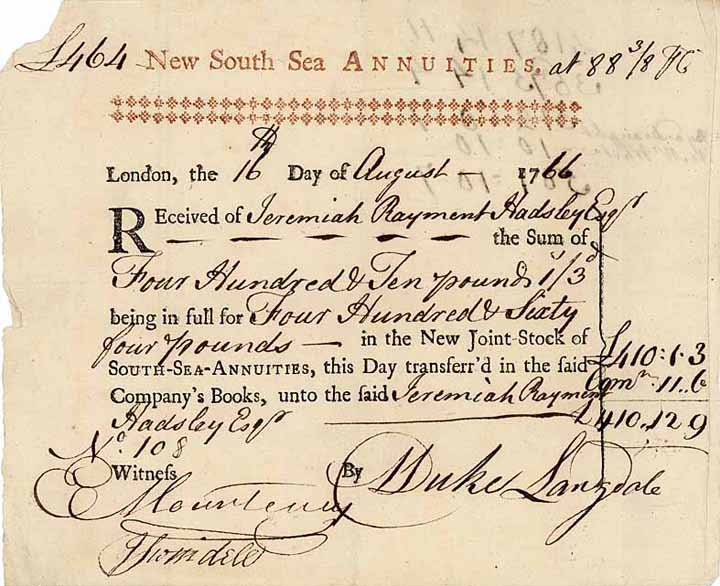 £464 New South Sea ANNUITIES. at 88 3/8 PC
London, the 16th Day of August 1766
REceived of Jeremiah Rayment Hadsley Esqr
the Sum of
Four Hundred & Ten pounds 1s/3d
being in full for Four Hundred & Sixty
four pounds — in the New Joint-Stock of
SOUTH-SEA-ANNUITIES, this Day transferr'd in the said
Company's Books, unto the said Jeremiah Rayment
Hadsley Esqr
£410:1.3
Comn: 11..6
£410..12 9
No. 108
Witness By Duke Langdale
E Mounteney